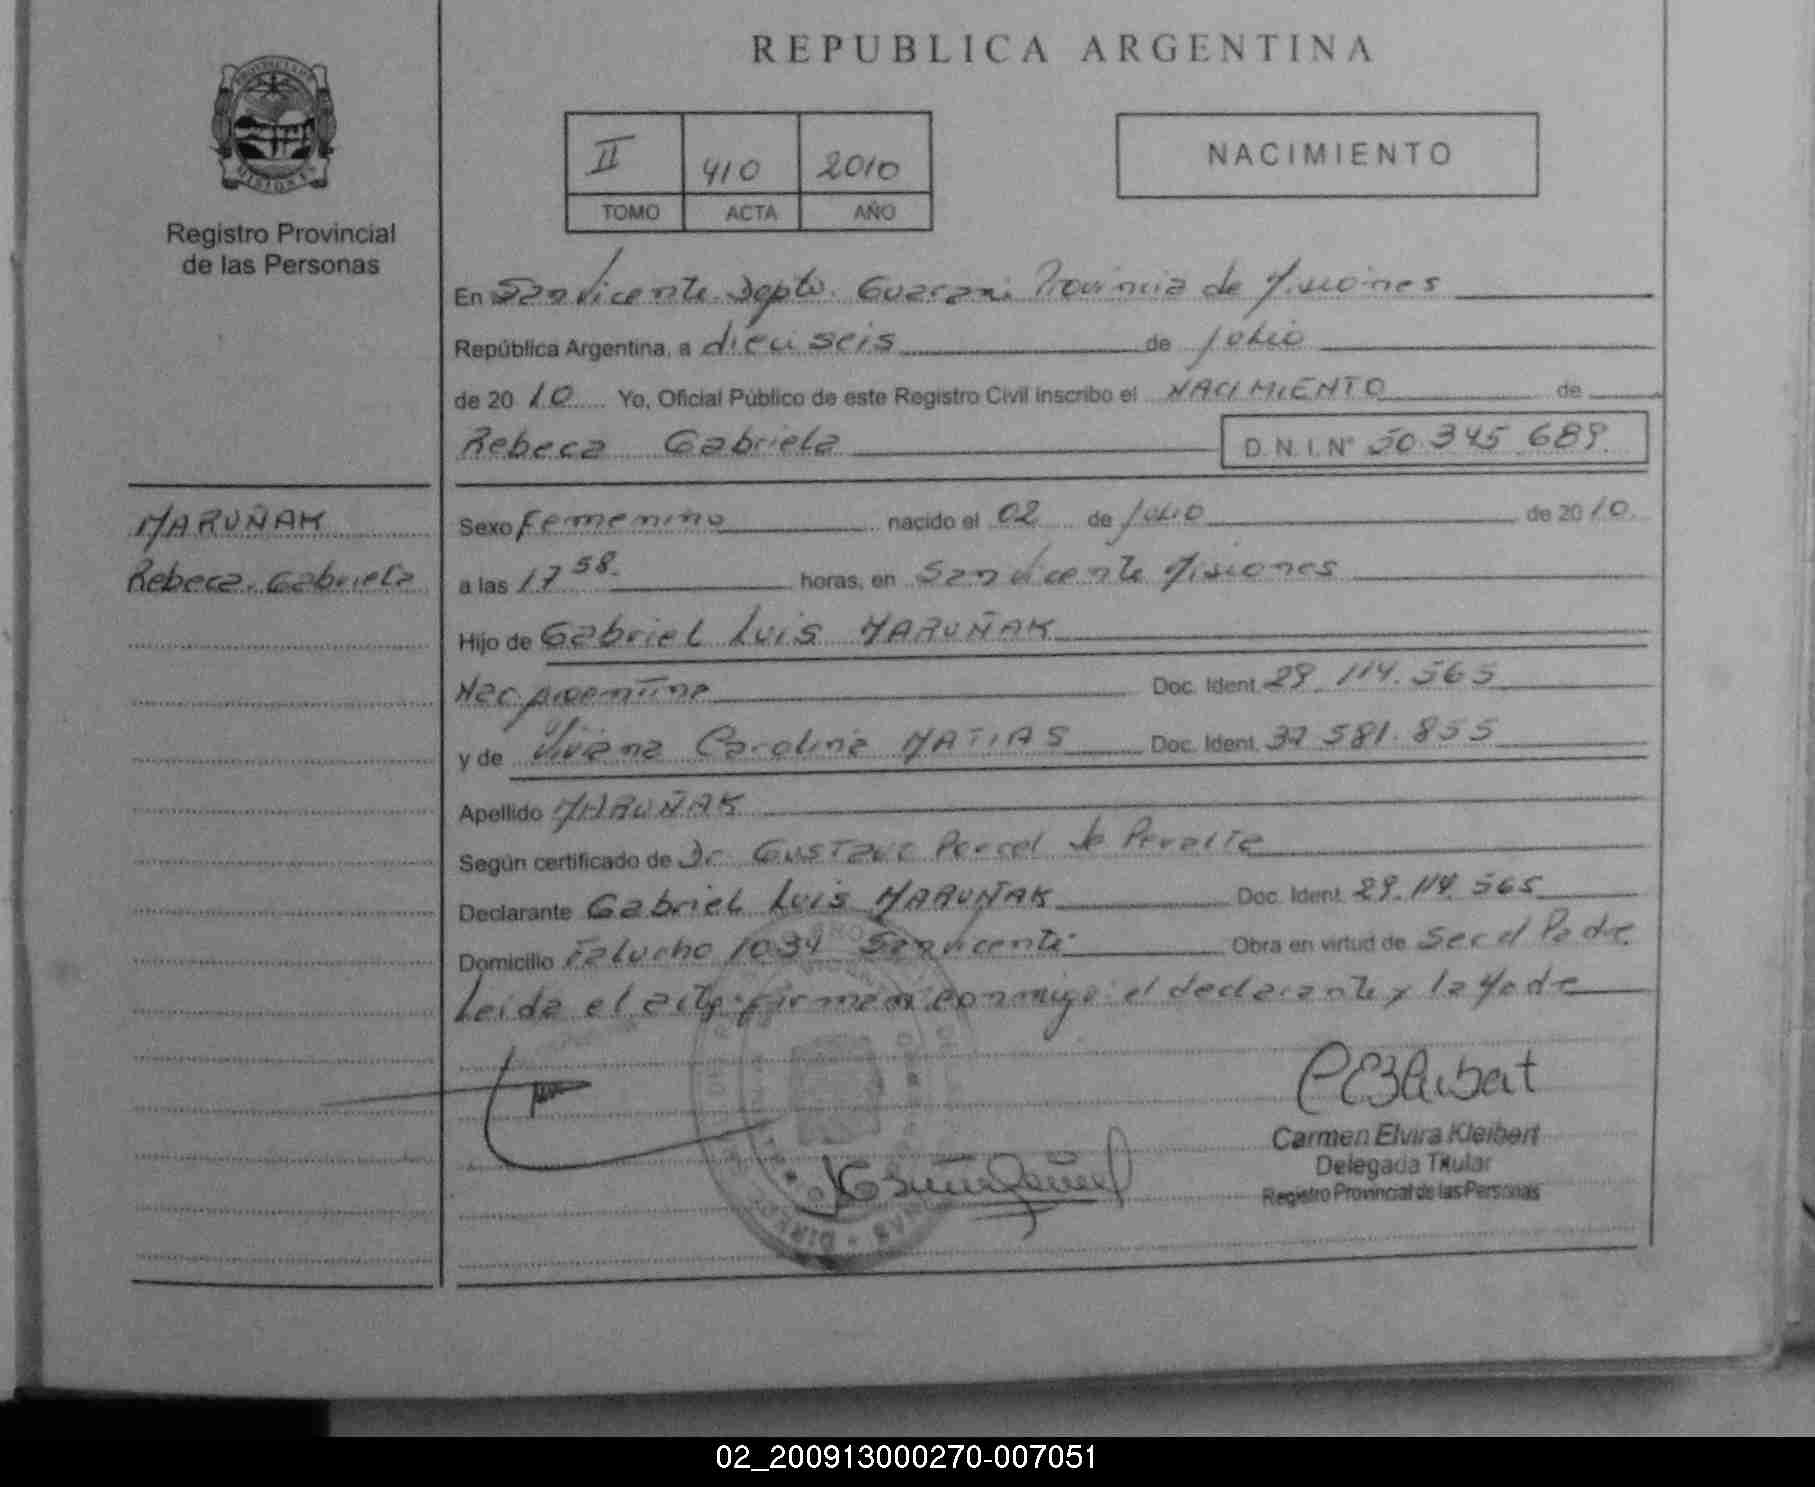 REPUBLICA ARGENTINA
PROVINCIA DE MISIONES
Registro Provincial
de las Personas
II 410 2010
TOMO ACTA AÑO
NACIMIENTO
En San Vicente Depto. Guarani Provincia de Misiones
República Argentina, a dieciseis de Julio
de 2010 Yo, Oficial Público de este Registro Civil inscribo el NACIMIENTO de
Rebeca Gabriela D.N.I.Nº 50.345.689.
MARUÑAK
Rebeca Gabriela
Sexo Femenino nacido el 02 de Julio de 2010.
a las 17 58. horas, en San Vicente Misiones
Hijo de Gabriel Luis MARUÑAK
Nac. Argentina Doc. Ident. 29.114.565
y de Viviana Carolina MATIAS Doc. Ident. 37.581.855
Apellido MARUÑAK
Según certificado de Dr. Gustavo Porcel de Peralta
Declarante Gabriel Luis MARUÑAK Doc. Ident. 29.114.565
Domicilio Falucho 1034 San Vicente Obra en virtud de Ser el Padre
Leida el acta firman conmigo el declarante y la Madre
Carmen Elvira Kleibert
Delegada Titular
Registro Provincial de las Personas
02_200913000270-007051